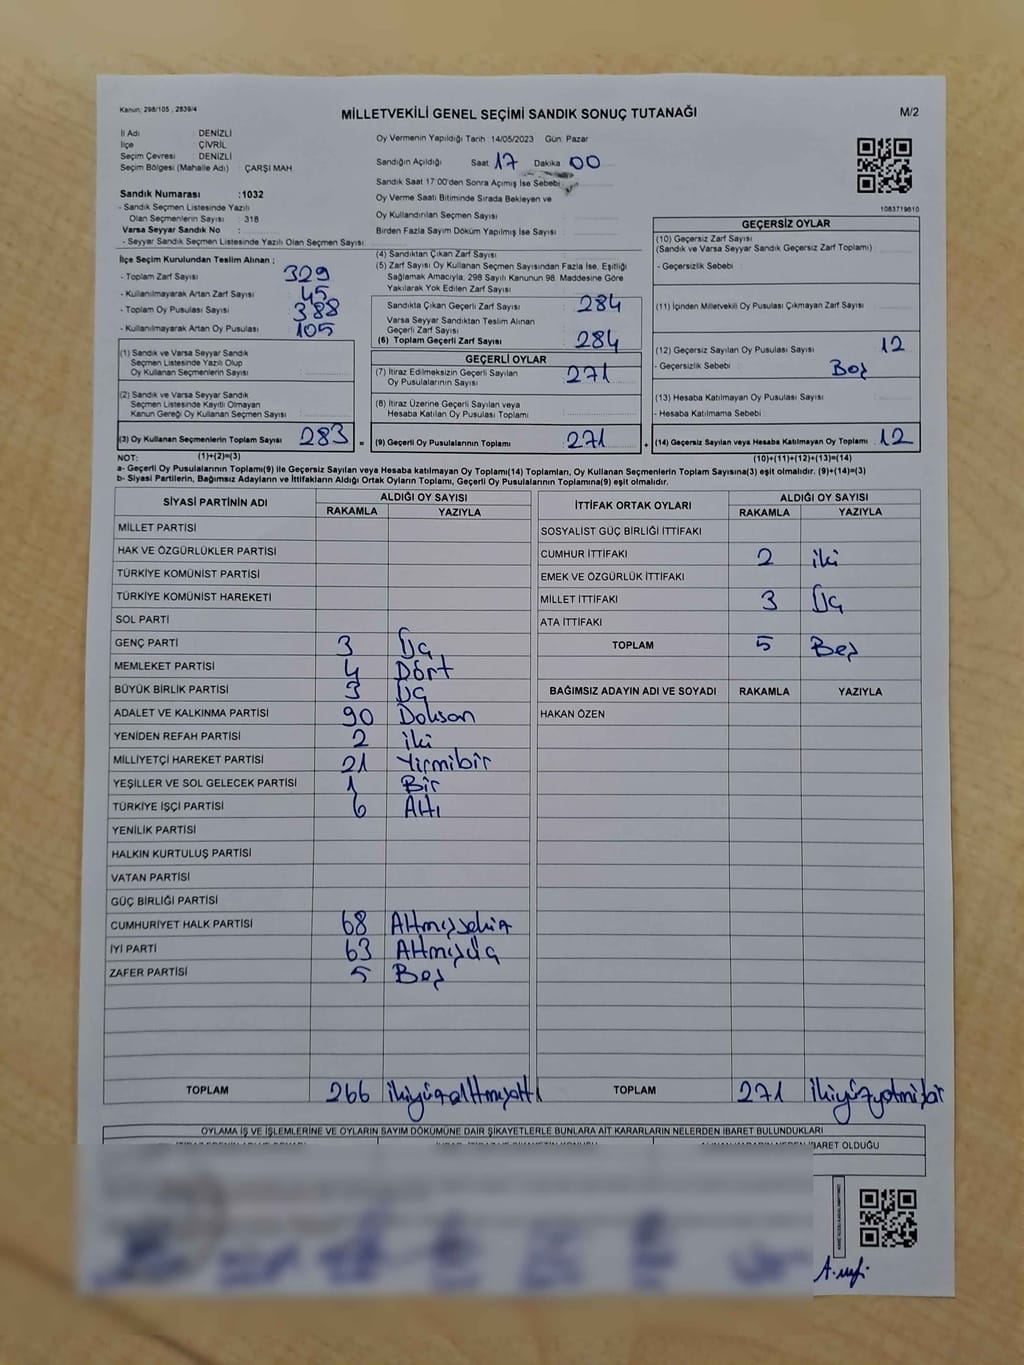 Kanun: 298/105 , 2839/4
MİLLETVEKİLİ GENEL SEÇİMİ SANDIK SONUÇ TUTANAĞI
M/2
İl Adı : DENİZLİ
İlçe : ÇİVRİL
Seçim Çevresi : DENİZLİ
Seçim Bölgesi (Mahalle Adı) : ÇARŞI MAH
Sandık Numarası :1032
- Sandık Seçmen Listesinde Yazılı
Olan Seçmenlerin Sayısı : 318
Varsa Seyyar Sandık No :
- Seyyar Sandık Seçmen Listesinde Yazılı Olan Seçmen Sayısı:
Oy Vermenin Yapıldığı Tarih : 14/05/2023 Gün: Pazar
Sandığın Açıldığı Saat 17 Dakika 00
Sandık Saat 17:00'den Sonra Açılmış İse Sebebi:
Oy Verme Saati Bitiminde Sırada Bekleyen ve
Oy Kullandırılan Seçmen Sayısı :
Birden Fazla Sayım Döküm Yapılmış İse Sayısı :
1083719810
İlçe Seçim Kurulundan Teslim Alınan ;
- Toplam Zarf Sayısı : 329
- Kullanılmayarak Artan Zarf Sayısı : 45
- Toplam Oy Pusulası Sayısı : 388
- Kullanılmayarak Artan Oy Pusulası : 105
(1) Sandık ve Varsa Seyyar Sandık
Seçmen Listesinde Yazılı Olup
Oy Kullanan Seçmenlerin Sayısı :
(2) Sandık ve Varsa Seyyar Sandık
Seçmen Listesinde Kayıtlı Olmayan
Kanun Gereği Oy Kullanan Seçmen Sayısı :
(3) Oy Kullanan Seçmenlerin Toplam Sayısı : 283 =
(1)+(2)=(3)
(4) Sandıktan Çıkan Zarf Sayısı :
(5) Zarf Sayısı Oy Kullanan Seçmen Sayısından Fazla İse, Eşitliği
Sağlamak Amacıyla, 298 Sayılı Kanunun 98. Maddesine Göre
Yakılarak Yok Edilen Zarf Sayısı :
Sandıkta Çıkan Geçerli Zarf Sayısı : 284
Varsa Seyyar Sandıktan Teslim Alınan
Geçerli Zarf Sayısı :
(6) Toplam Geçerli Zarf Sayısı : 284
GEÇERLİ OYLAR
(7) İtiraz Edilmeksizin Geçerli Sayılan
Oy Pusulalarının Sayısı : 271
(8) İtiraz Üzerine Geçerli Sayılan veya
Hesaba Katılan Oy Pusulası Toplamı :
(9) Geçerli Oy Pusulalarının Toplamı : 271 +
GEÇERSİZ OYLAR
(10) Geçersiz Zarf Sayısı
(Sandık ve Varsa Seyyar Sandık Geçersiz Zarf Toplamı) :
- Geçersizlik Sebebi :
(11) İçinden Milletvekili Oy Pusulası Çıkmayan Zarf Sayısı :
(12) Geçersiz Sayılan Oy Pusulası Sayısı : 12
- Geçersizlik Sebebi : Boş
(13) Hesaba Katılmayan Oy Pusulası Sayısı :
- Hesaba Katılmama Sebebi :
(14) Geçersiz Sayılan veya Hesaba Katılmayan Oy Toplamı : 12
(10)+(11)+(12)+(13)=(14)
NOT:
a- Geçerli Oy Pusulalarının Toplamı(9) ile Geçersiz Sayılan veya Hesaba katılmayan Oy Toplamı(14) Toplamları, Oy Kullanan Seçmenlerin Toplam Sayısına(3) eşit olmalıdır. (9)+(14)=(3)
b- Siyasi Partilerin, Bağımsız Adayların ve İttifakların Aldığı Ortak Oyların Toplamı, Geçerli Oy Pusulalarının Toplamına(9) eşit olmalıdır.
SİYASİ PARTİNİN ADI
ALDIĞI OY SAYISI
RAKAMLA YAZIYLA
MİLLET PARTİSİ
HAK VE ÖZGÜRLÜKLER PARTİSİ
TÜRKİYE KOMÜNİST PARTİSİ
TÜRKİYE KOMÜNİST HAREKETİ
SOL PARTİ
GENÇ PARTİ 3 Üç
MEMLEKET PARTİSİ 4 Dört
BÜYÜK BİRLİK PARTİSİ 3 Üç
ADALET VE KALKINMA PARTİSİ 90 Doksan
YENİDEN REFAH PARTİSİ 2 iki
MİLLİYETÇİ HAREKET PARTİSİ 21 Yirmibir
YEŞİLLER VE SOL GELECEK PARTİSİ 1 Bir
TÜRKİYE İŞÇİ PARTİSİ 6 Altı
YENİLİK PARTİSİ
HALKIN KURTULUŞ PARTİSİ
VATAN PARTİSİ
GÜÇ BİRLİĞİ PARTİSİ
CUMHURİYET HALK PARTİSİ 68 Altmışsekiz
İYİ PARTİ 63 Altmışüç
ZAFER PARTİSİ 5 Beş
TOPLAM 266 ikiyüzaltmışaltı
İTTİFAK ORTAK OYLARI
ALDIĞI OY SAYISI
RAKAMLA YAZIYLA
SOSYALİST GÜÇ BİRLİĞİ İTTİFAKI
CUMHUR İTTİFAKI 2 iki
EMEK VE ÖZGÜRLÜK İTTİFAKI
MİLLET İTTİFAKI 3 Üç
ATA İTTİFAKI
TOPLAM 5 Beş
BAĞIMSIZ ADAYIN ADI VE SOYADI RAKAMLA YAZIYLA
HAKAN ÖZEN
TOPLAM 271 ikiyüzyetmişbir
OYLAMA İŞ VE İŞLEMLERİNE VE OYLARIN SAYIM DÖKÜMÜNE DAİR ŞİKAYETLERLE BUNLARA AİT KARARLARIN NELERDEN İBARET BULUNDUKLARI
İBARET OLDUĞU